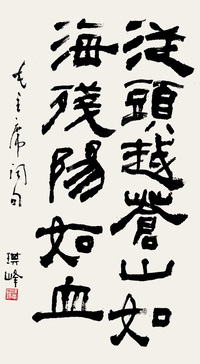 從頭越蒼山如
海殘陽如血
毛主席词句
琪峰